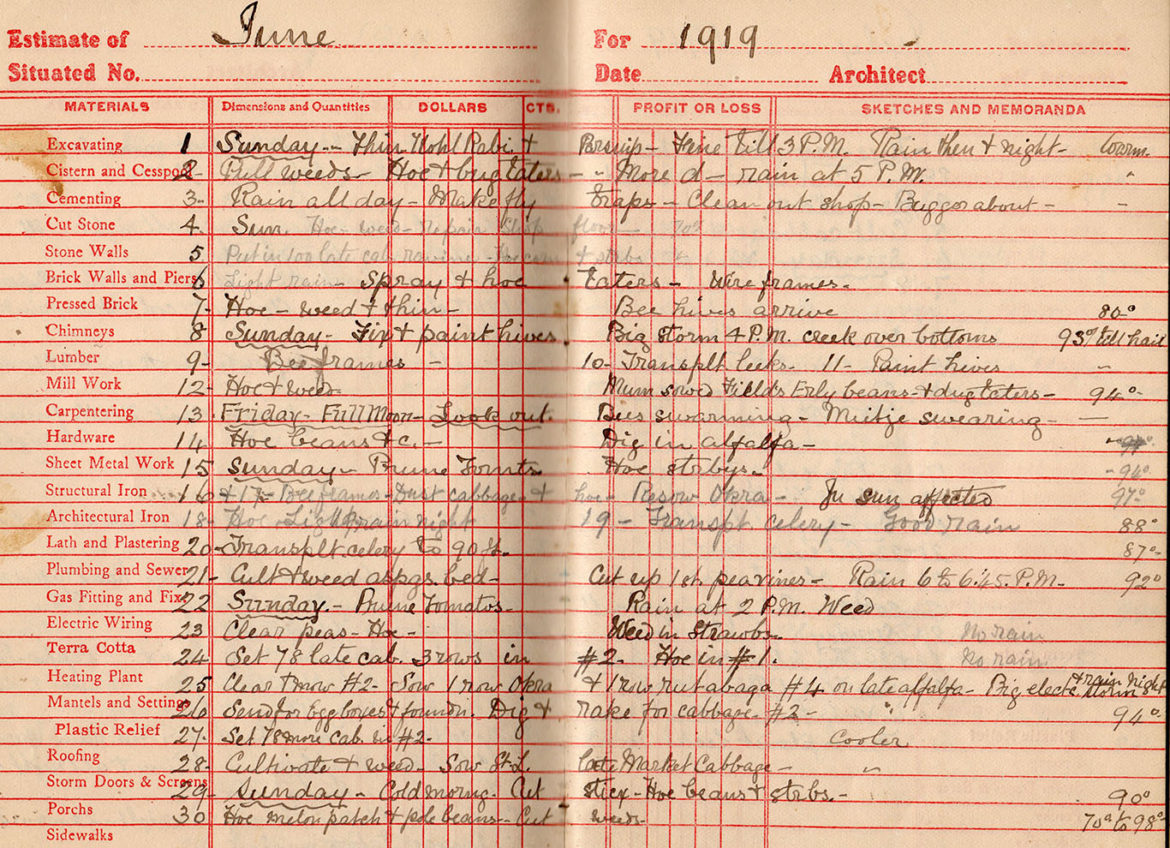 Estimate of June For 1919
Situated No. Date Architect
MATERIALS Dimensions and Quantities DOLLARS CTS. PROFIT OR LOSS SKETCHES AND MEMORANDA
Excavating 1 Sunday.- Thin Kohl Rabi & Parsnip - Fine till 3 P.M. Rain then & night-
Cistern and Cesspool 2- Pull weeds- Hoe & bug taters- " More d- rain at 5 P.M. "
Cementing 3- Rain all day- Make fly traps- Clean out shop- Bugger about- -
Cut Stone 4. Sun. Hoe- weed- repair shop floor- 70°
Stone Walls 5 Put in 100 late cab. & strbs
Brick Walls and Piers 6 Light rain- Spray & hoe taters- Wire frames-
Pressed Brick 7- Hoe- weed & thin- Bee hives arrive 80°
Chimneys 8 Sunday- Fix & paint hives. Big storm 4 P.M. creek over bottoms 93° till hail
Lumber 9- Bee frames - 10- Transplt leeks- 11- Paint hives -
Mill Work 12- Hoe & weed Mum sowed Fields Erly beans- & dug taters- 94°-
Carpentering 13. Friday- Full Moon- Look out. Bees swarming- swearing- -
Hardware 14 Hoe beans &c.- Dig in alfalfa-
Sheet Metal Work 15 Sunday- Prune Tomts Hoe strbys- -96°-
Structural Iron 16 & 17- Bee frames- Dust cabbage & hoe- Resow Okra- In sun affected 97°
Architectural Iron 18- Hoe Light rain night 19- Transpt. celery- Good rain 88°
Lath and Plastering 20- Transplt celery to 90 ft. 87°-
Plumbing and Sewer 21- Cult & weed aspgs. bed- Cut up 1st. pea vines- Rain 6 to 6:45 P.M.- 92°
Gas Fitting and Fix 22 Sunday.- Prune Tomatos- Rain at 2 P.M. Weed
Electric Wiring 23 Clear peas- Hoe- Weed in Strawbs. No rain
Terra Cotta 24 Set 78 late cab. 3 rows in #2- Hoe in #1. No rain
Heating Plant 25 Clear & mow #2- Sow 1 row Okra & 1 row rutabaga #4 on late alfalfa- Big electc storm & rain night
Mantels and Settings 26 Send for Egg boxes & foundn. Dig & rake for cabbage- #2- " 94°-
Plastic Relief 27. Set 78 more cab. in #2- Cooler
Roofing 28- Cultivate & weed- Sow St. L. late Market Cabbage- "
Storm Doors & Screens 29- Sunday- Cold morng. Cut stix- Hoe beans & strbs.- 90°
Porchs 30 Hoe melon patch & pole beans- Cut weeds- 70° to 98°
Sidewalks